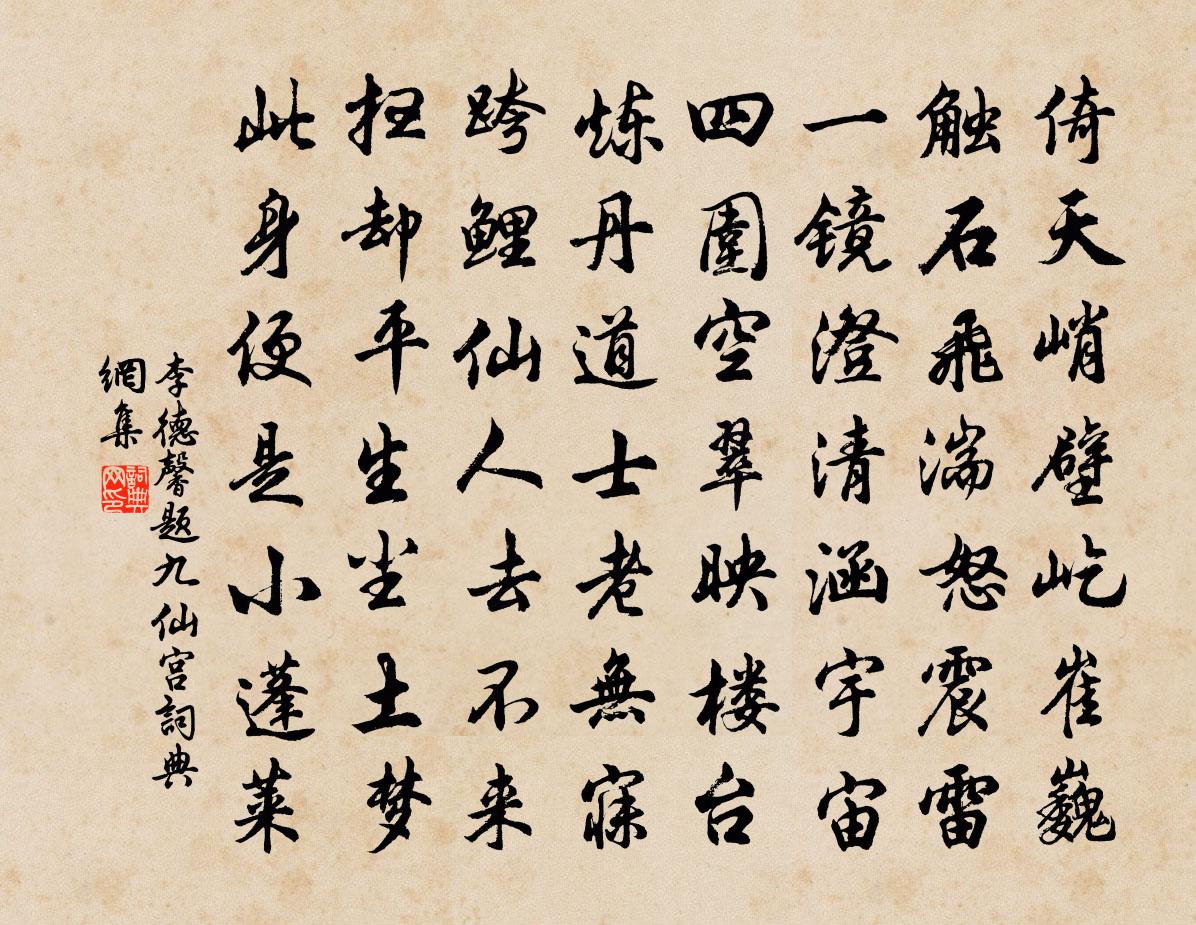 倚天峭壁屹崔巍
触石飛湍怒震雷
一镜澄清涵宇宙
四圍空翠映楼台
炼丹道士老無寐
跨鲤仙人去不来
扫却平生尘土梦
此身便是小蓬莱
李德馨题九仙宫詞典
網集
詞典
网印